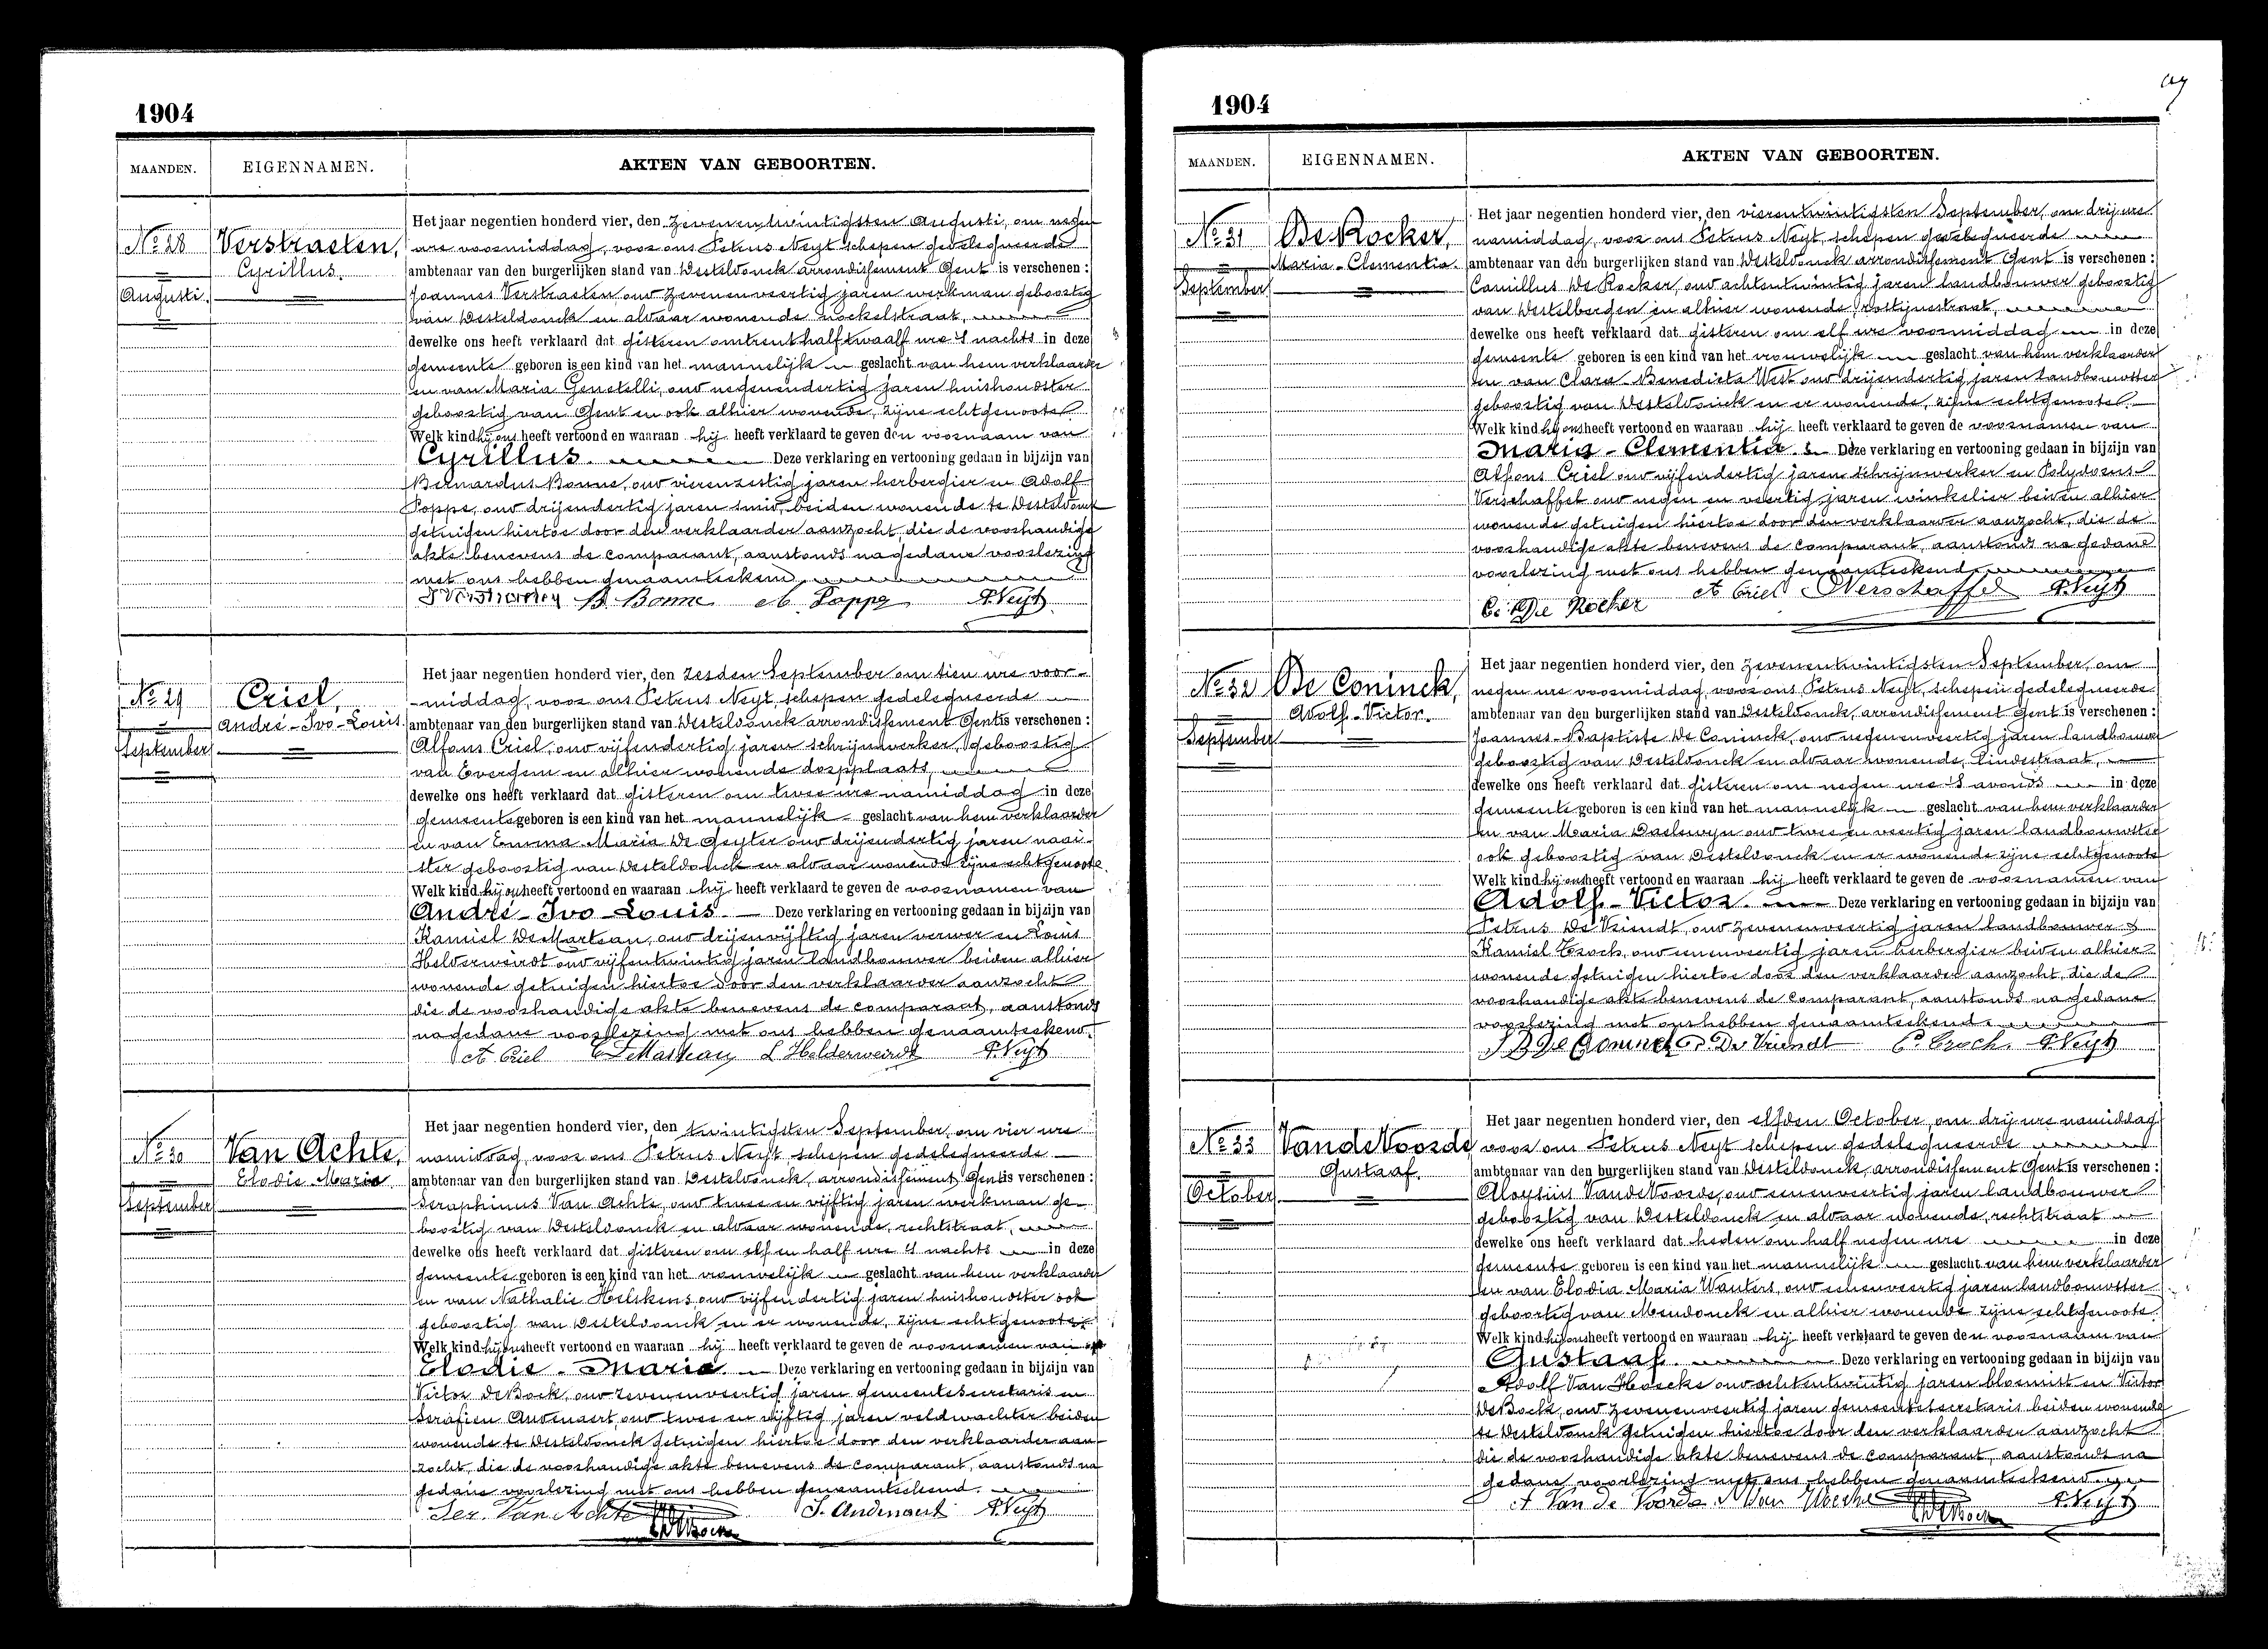 1904
MAANDEN. EIGENNAMEN. AKTEN VAN GEBOORTEN.
No 28
Augusti.
Verstraeten,
Cyrillus.
Het jaar negentien honderd vier, den zevenentwintigsten Augusti, om negen
ure voormiddag, voor ons Petrus Neyt schepen gedelegueerde
ambtenaar van den burgerlijken stand van Desteldonck arrondissement Gent is verschenen :
Joannes Verstraeten oud zevenenveertig jaren werkman geboortig
van Desteldonck en aldaar wonende
dewelke ons heeft verklaard dat gisteren omtrent half twaalf ure 's nachts in deze
gemeente geboren is een kind van het mannelijk geslacht van hem verklaarder
en van Maria Genetelli, oud negenendertig jaren huishoudster
geboortig van Gent en ook alhier wonende, zijne echtgenoote
Welk kind hij ons heeft vertoond en waaraan hij heeft verklaard te geven den voornaam van
Cyrillus. Deze verklaring en vertooning gedaan in bijzijn van
Bernardus Bonne, oud vierenzestig jaren herbergier en Adolf
Poppe, oud drijendertig jaren smid, beiden wonende te Desteldonck
getuigen hiertoe door den verklaarder aanzocht, die de voorhandige
akte benevens de comparant, aanstonds na gedane voorlezing
met ons hebben genaamteekend
B. Bonne A. Poppe P. Neyt
No 29
September
Criel,
André-Ivo-Louis
Het jaar negentien honderd vier, den zesden September om tien ure voor-
-middag, voor ons Petrus Neyt, schepen gedelegueerde
ambtenaar van den burgerlijken stand van Desteldonck arrondissement Gent is verschenen :
Alfons Criel, oud vijfendertig jaren schrijnwerker, geboortig
van Evergem en alhier wonende dorpplaats,
dewelke ons heeft verklaard dat gisteren om twee ure namiddag in deze
gemeente geboren is een kind van het mannelijk geslacht van hem verklaarder
en van Emma Maria De Geyter oud drijendertig jaren naai-
ster geboortig van Desteldonck en aldaar wonende zijne echtgenoote.
Welk kind hij ons heeft vertoond en waaraan hij heeft verklaard te geven de voornamen van
André-Ivo-Louis. Deze verklaring en vertooning gedaan in bijzijn van
Kamiel De Marteau, oud drijenvijftig jaren verwer en Louis
Helderweirdt oud vijfentwintig jaren landbouwer beiden alhier
wonende getuigen hiertoe door den verklaarder aanzocht
die de voorhandige akte benevens de comparant, aanstonds
na gedane voorlezing met ons hebben genaamteekend.
A. Criel L Helderweirdt P. Neyt
No 30
September
Van Achte,
Elodie Maria
Het jaar negentien honderd vier, den twintigsten September, om vier ure
namiddag, voor ons Petrus Neyt schepen gedelegueerde
ambtenaar van den burgerlijken stand van Desteldonck, arrondissement Gent is verschenen :
Seraphinus Van Achte, oud twee en vijftig jaren werkman ge-
boortig van Desteldonck en aldaar wonende, rechtstraat,
dewelke ons heeft verklaard dat gisteren om elf en half ure 's nachts in deze
gemeente geboren is een kind van het vrouwelijk geslacht van hem verklaarder
en van Nathalie Helskens, oud vijfendertig jaren huishoudster ook
geboortig van Desteldonck en er wonende, zijne echtgenoote.
Welk kind hij ons heeft vertoond en waaraan hij heeft verklaard te geven de voornamen van
Elodie-Maria. Deze verklaring en vertooning gedaan in bijzijn van
Victor De Bock, oud zevenenveertig jaren gemeentesecretaris en
Serafien Audenaert, oud twee en vijftig jaren veldwachter beiden
wonende te Desteldonck getuigen hiertoe door den verklaarder aan-
zocht, die de voorhandige akte benevens de comparant, aanstonds na
gedane voorlezing met ons hebben genaamteekend.
Ser. Van Achte S. Audenaert P. Neyt
1904
MAANDEN. EIGENNAMEN. AKTEN VAN GEBOORTEN.
No 31
September
De Rocker,
Maria-Clementia.
Het jaar negentien honderd vier, den vierentwintigsten September, om drij ure
namiddag, voor ons Petrus Neyt, schepen gedelegueerde
ambtenaar van den burgerlijken stand van Desteldonck arrondissement Gent is verschenen :
Camillus De Rocker, oud achtentwintig jaren landbouwer geboortig
van Destelbergen en alhier wonende,
dewelke ons heeft verklaard dat gisteren om elf ure voormiddag in deze
gemeente geboren is een kind van het vrouwelijk geslacht van hem verklaarder
en van Clara-Benedicta West oud drijendertig jaren landbouwster
geboortig van Desteldonck en er wonende, zijne echtgenoote.
Welk kind hij ons heeft vertoond en waaraan hij heeft verklaard te geven de voornamen van
Maria-Clementia. Deze verklaring en vertooning gedaan in bijzijn van
Alfons Criel oud vijfendertig jaren schrijnwerker en Polydorus
Verschaffel oud negen en veertig jaren winkelier beiden alhier
wonende getuigen hiertoe door den verklaarder aanzocht, die de
voorhandige akte benevens de comparant, aanstonds na gedane
voorlezing met ons hebben genaamteekend
C. De Rocker A Criel Verschaffel P. Neyt
No 32
September
De Coninck,
Adolf-Victor.
Het jaar negentien honderd vier, den zevenentwintigsten September, om
negen ure voormiddag voor ons Petrus Neyt, schepen gedelegueerde
ambtenaar van den burgerlijken stand van Desteldonck, arrondissement Gent is verschenen :
Joannes-Baptiste De Coninck, oud negenenveertig jaren landbouwer
geboortig van Desteldonck en aldaar wonende, Lindestraat,
dewelke ons heeft verklaard dat gisteren om negen ure 's avonds in deze
gemeente geboren is een kind van het mannelijk geslacht van hem verklaarder
en van Maria Daelewyn oud twee en veertig jaren landbouwster
ook geboortig van Desteldonck en er wonende zijne echtgenoote
Welk kind hij ons heeft vertoond en waaraan hij heeft verklaard te geven de voornamen van
Adolf-Victor. Deze verklaring en vertooning gedaan in bijzijn van
Petrus De Vriendt, oud zevenenveertig jaren landbouwer &
Kamiel Croch, oud eenenveertig jaren herbergier beiden alhier
wonende getuigen hiertoe door den verklaarder aanzocht, die de
voorhandige akte benevens de comparant, aanstonds na gedane
voorlezing met ons hebben genaamteekend.
J B De Coninck P. De Vriendt C. Croch. P. Neyt
No 33
October
Van de Voorde
Gustaaf.
Het jaar negentien honderd vier, den elfden October, om drij ure namiddag
voor ons Petrus Neyt schepen gedelegueerde
ambtenaar van den burgerlijken stand van Desteldonck, arrondissement Gent is verschenen :
Aloysius Van de Voorde, oud eenenveertig jaren landbouwer
geboortig van Desteldonck en aldaar wonende, rechtstraat
dewelke ons heeft verklaard dat heden om half negen ure in deze
gemeente geboren is een kind van het mannelijk geslacht van hem verklaarder
en van Elodia Maria Wauters, oud eenenveertig jaren landbouwster
geboortig van Mendonck en alhier wonende zijne echtgenoote.
Welk kind hij ons heeft vertoond en waaraan hij heeft verklaard te geven den voornaam van
Gustaaf. Deze verklaring en vertooning gedaan in bijzijn van
Adolf Van Hoecke oud achtentwintig jaren bloemist en Victor
De Bock, oud zevenenveertig jaren gemeentesecretaris beiden wonende
te Desteldonck getuigen hiertoe door den verklaarder aanzocht
die de voorhandige akte benevens de comparant, aanstonds na
gedane voorlezing met ons hebben genaamteekend.
A Van de Voorde A Van Hoecke P. Neyt